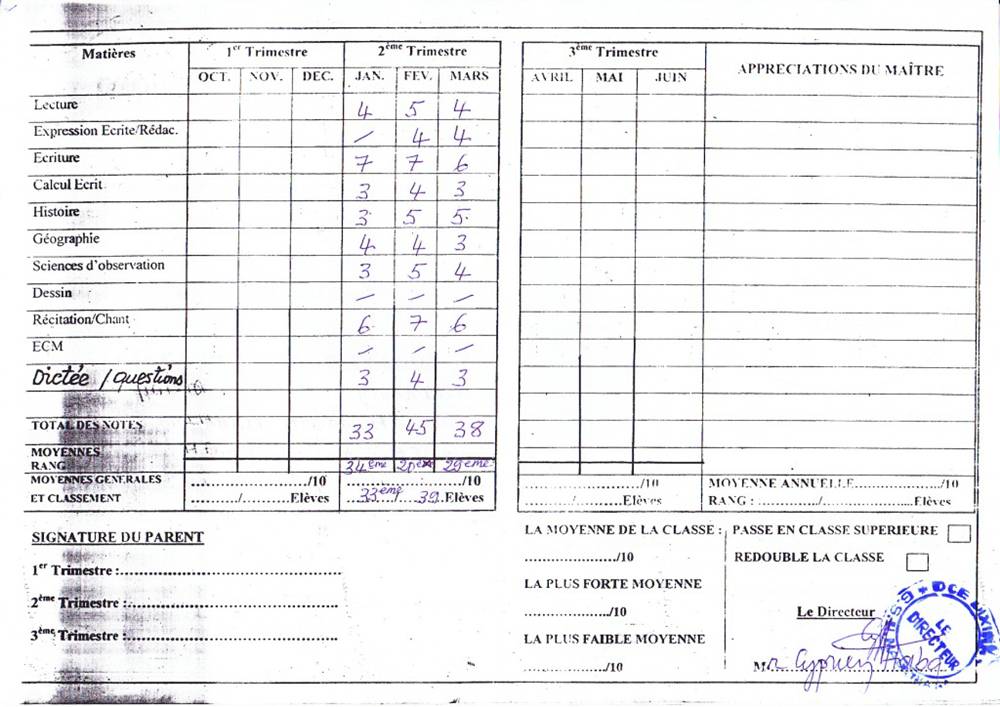 Matières 1er Trimestre 2ème Trimestre 3ème Trimestre APPRECIATIONS DU MAÎTRE
OCT. NOV. DEC. JAN. FEV. MARS AVRIL MAI JUIN
Lecture 4 5 4
Expression Ecrite/Rédac. / 4 4
Ecriture 7 7 6
Calcul Ecrit 3 4 3
Histoire 3 5 5
Géographie 4 4 3
Sciences d'observation 3 5 4
Dessin / / /
Récitation/Chant 6 7 6
ECM / / /
Dictée / questions 3 4 3
TOTAL DES NOTES 33 45 38
MOYENNES
RANG 34ème 20ème 29ème
MOYENNES GENERALES ........../10 ........../10 ........../10 MOYENNE ANNUELLE........../10
ET CLASSEMENT ........./.........Elèves 33ème / 39 Elèves ........./.........Elèves RANG :........./.........Elèves
SIGNATURE DU PARENT
1er Trimestre :..........
2ème Trimestre :..........
3ème Trimestre :..........
LA MOYENNE DE LA CLASSE :
........../10
LA PLUS FORTE MOYENNE
........../10
LA PLUS FAIBLE MOYENNE
........../10
PASSE EN CLASSE SUPERIEURE
REDOUBLE LA CLASSE
Le Directeur
Mr Cyprien
LE DIRECTEUR